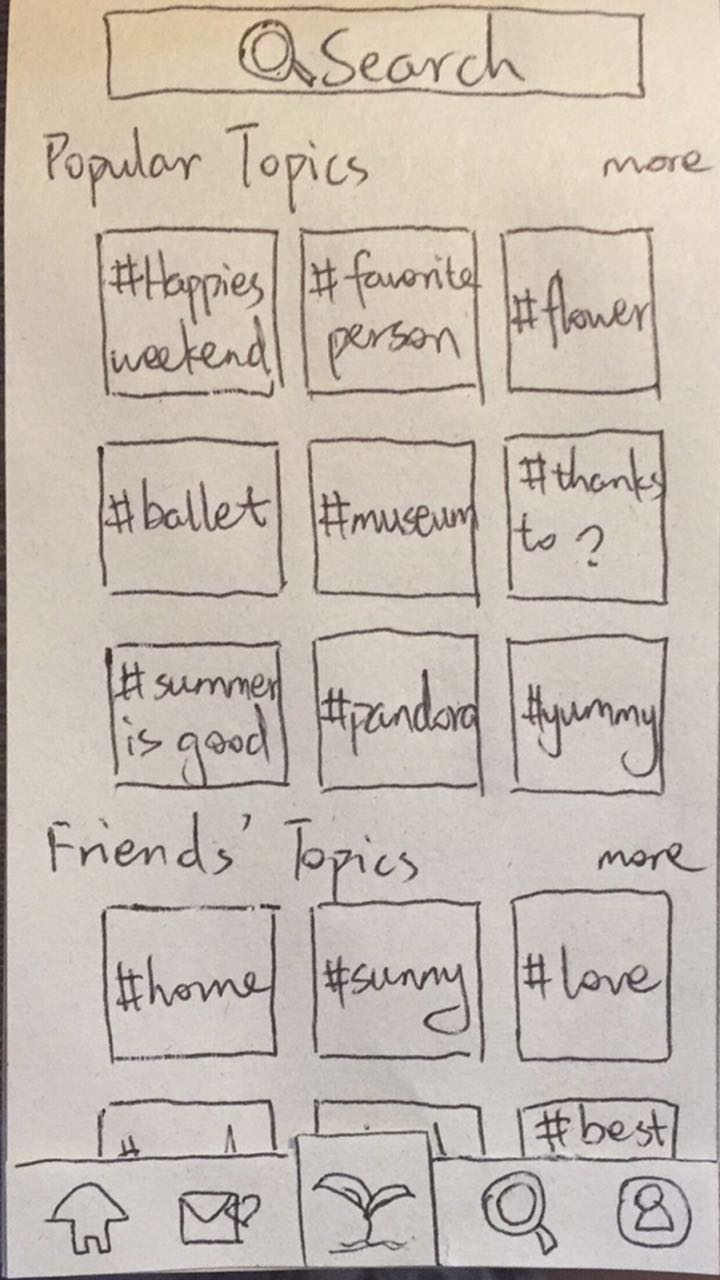 Search
Popular Topics more
#Happies
weekend
#favorite
person
#flower
#ballet
#museum
#thanks
to ?
#summer
is good
#pandora
#yummy
Friends' Topics more
#home
#sunny
#love
#
#best